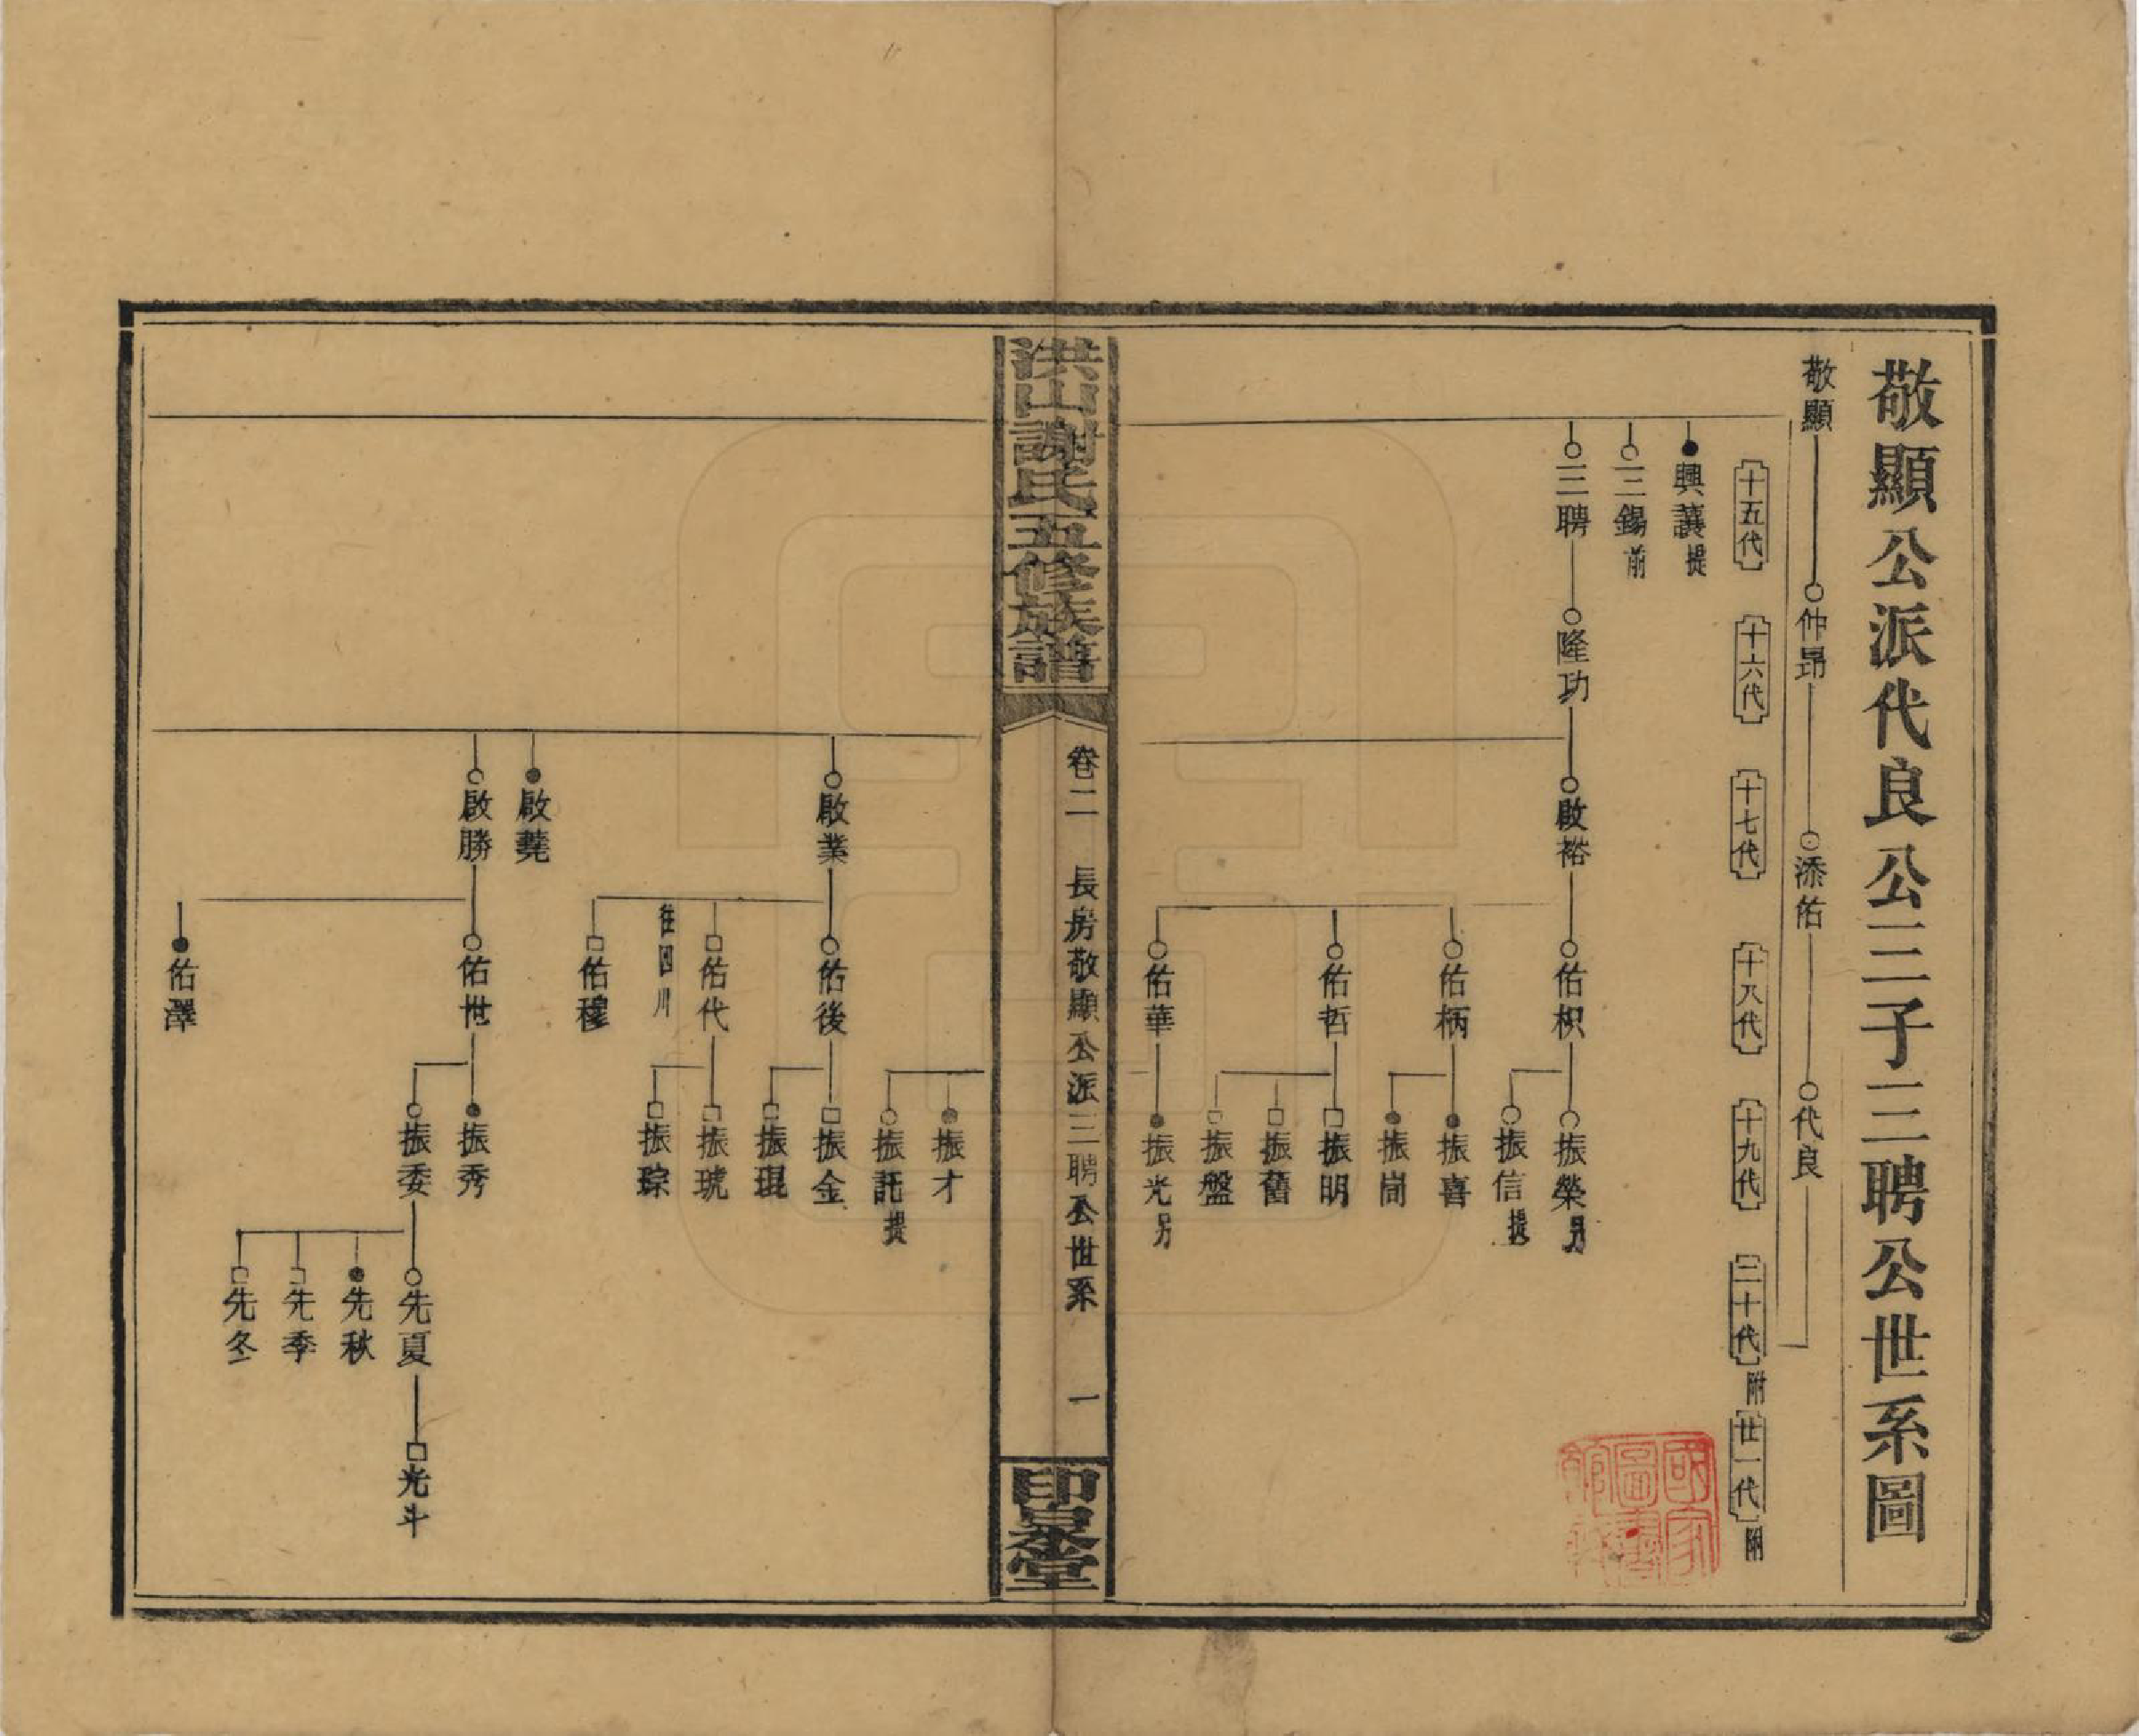 敬顯公派代良公三子三聘公世系圖
敬顯
仲昻
添佑
代良
十五代
十六代
十七代
十八代
十九代
二十代
附
廿一代
附
興讓 提
三錫 前
三聘
隆功
啟裕
佑枳
振榮 另
振信 提
佑柄
振喜
振崗
佑哲
振明
振舊
振盤
佑華
振光 另
洪山謝氏五修族譜
卷二
長房敬顯公派三聘公世系
一
印泉堂
振才
振託 提
啟業
佑後
振金
振琨
佑代
往四川
振琥
振琮
佑穆
啟堯
啟勝
佑世
振秀
振委
先夏
光斗
先秋
先季
先冬
佑澤